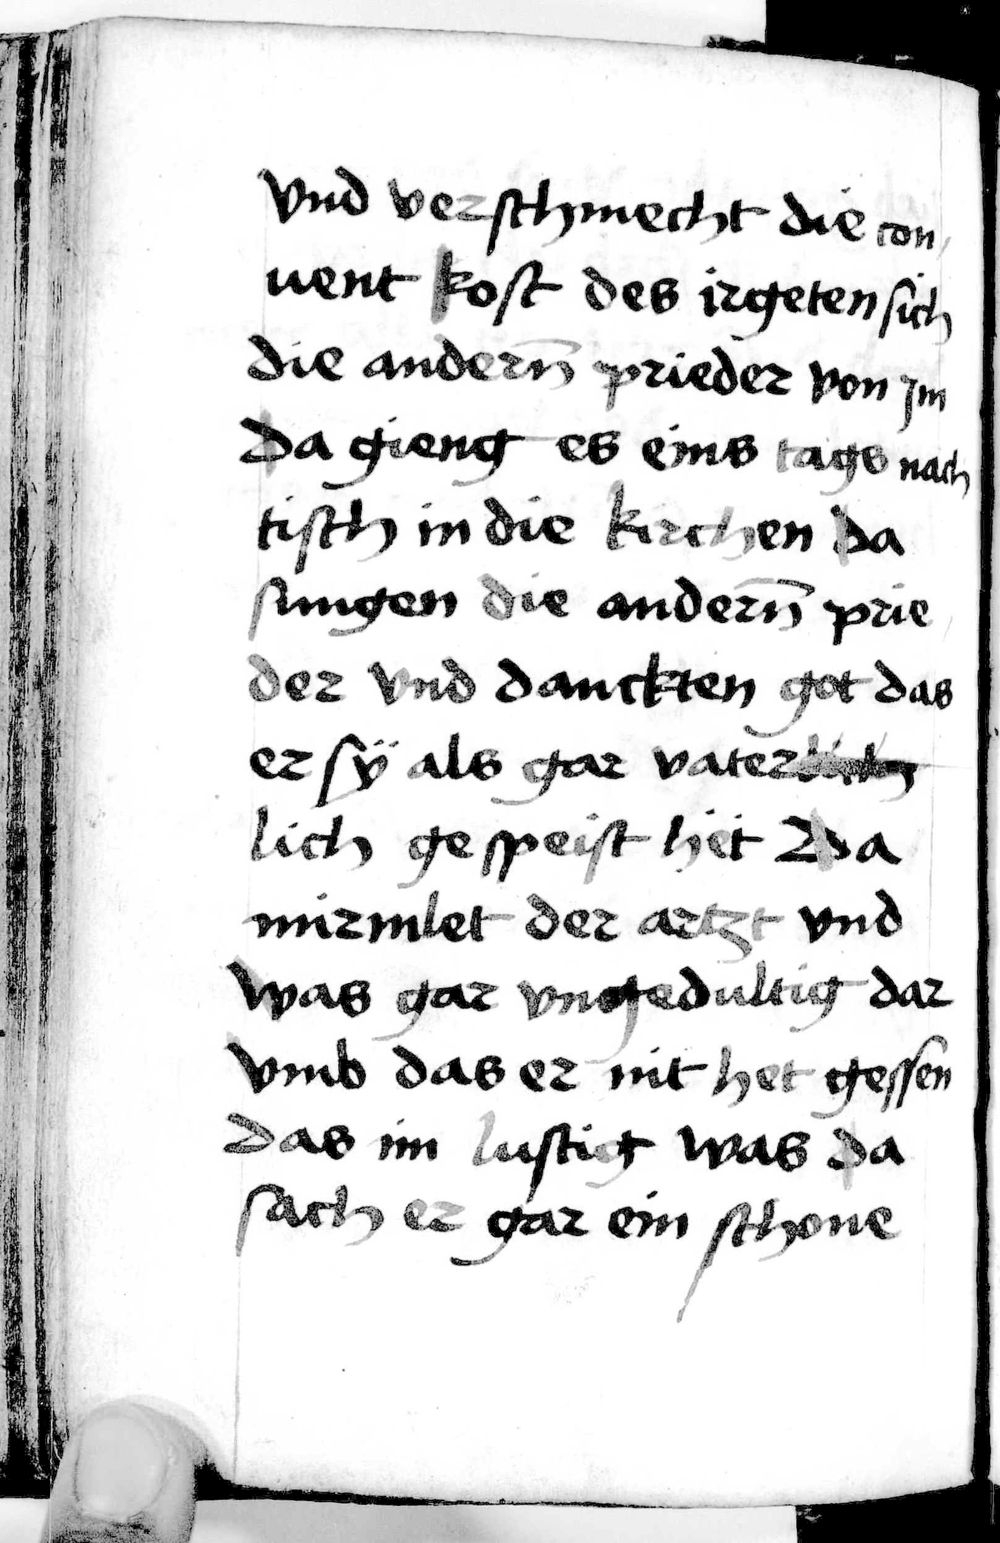 vnd verschmecht die con,
uent kost des irgeten sich
die andern̄ prieder von Jm
Da gieng es eins tags nach
tisch in die kirchen Da
sungen die andern̄ prie
der vnd danckten got das
er sÿ als gar vater
lich gespeist het Da
mirmlet der artzt vnd
was gar vngedultig dar
vmb das er nit het gessen
Das im lustig was da
sach er gar ein schone